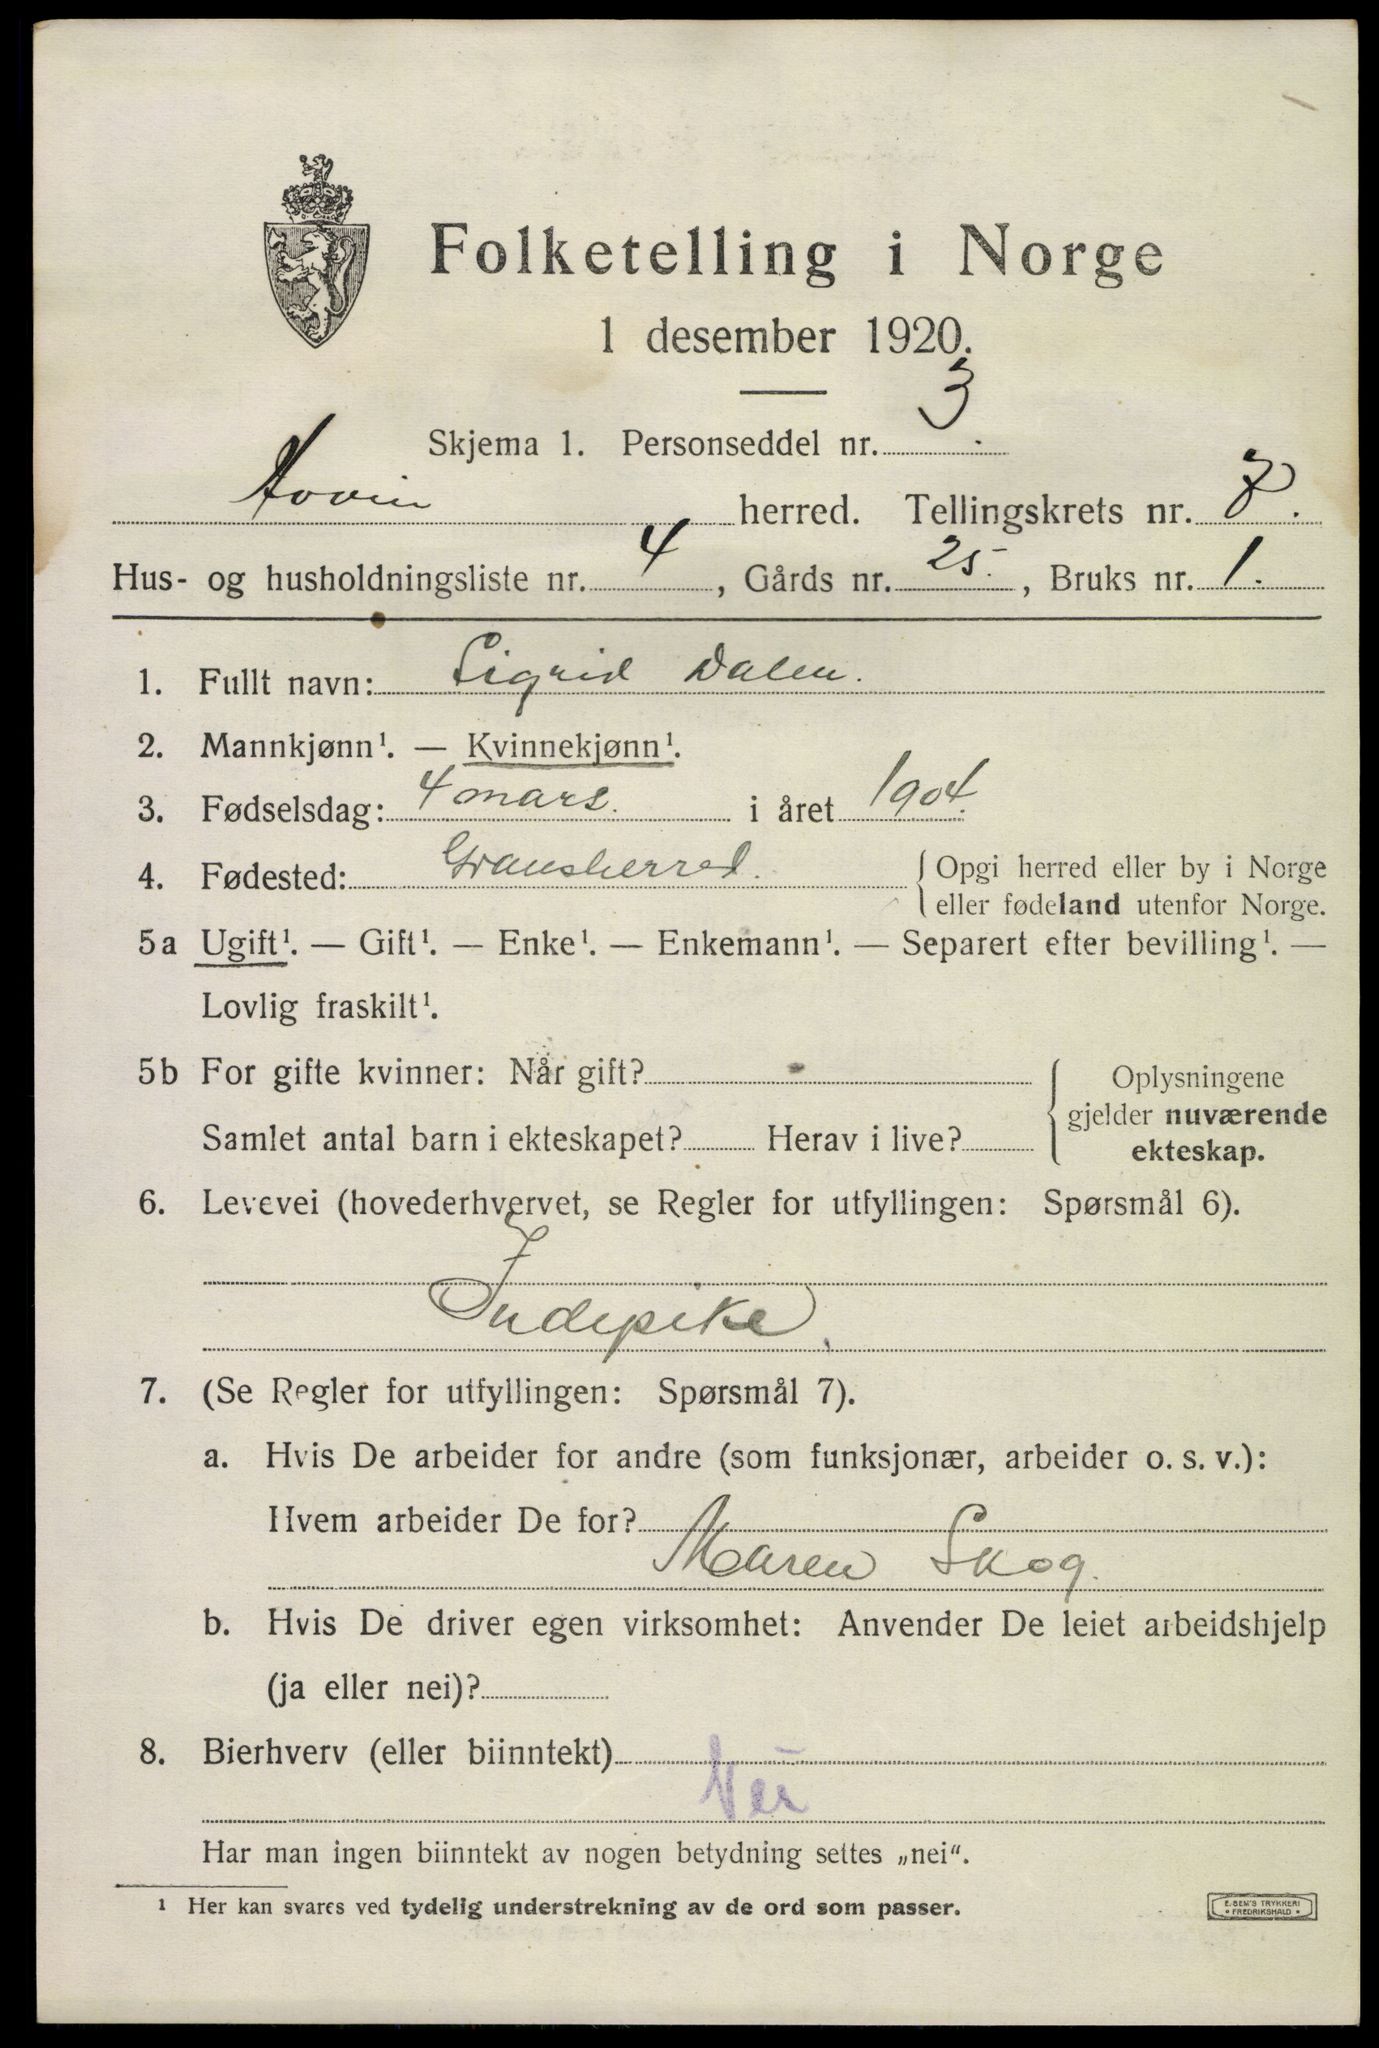 Folketelling i Norge
1 desember 1920.
Skjema 1. Personseddel nr. 3.
Hovin herred. Tellingskrets nr. 7.
Hus- og husholdningsliste nr. 4, Gårds nr. 25., Bruks nr. 1.
1. Fullt navn: Sigrid Dalen.
2. Mannkjønn¹. — Kvinnekjønn¹.
3. Fødselsdag: 4 mars. i året 1904.
4. Fødested: Gransherred. Opgi herred eller by i Norge
eller fødeland utenfor Norge.
5a Ugift¹. — Gift¹. — Enke¹. — Enkemann¹. — Separert efter bevilling¹. —
Lovlig fraskilt¹.
5b For gifte kvinner: Når gift? Oplysningene
gjelder nuværende
Samlet antal barn i ekteskapet? Herav i live? ekteskap.
6. Levevei (hovederhvervet, se Regler for utfyllingen: Spørsmål 6).
Indepike
7. (Se Regler for utfyllingen: Spørsmål 7).
a. Hvis De arbeider for andre (som funksjonær, arbeider o. s. v.):
Hvem arbeider De for?
Maren Skog.
b. Hvis De driver egen virksomhet: Anvender De leiet arbeidshjelp
(ja eller nei)?
8. Bierhverv (eller biinntekt)
Nei
Har man ingen biinntekt av nogen betydning settes „nei“.
¹ Her kan svares ved tydelig understrekning av de ord som passer.
E. SEM'S TRYKKERI
FREDRIKSHALD